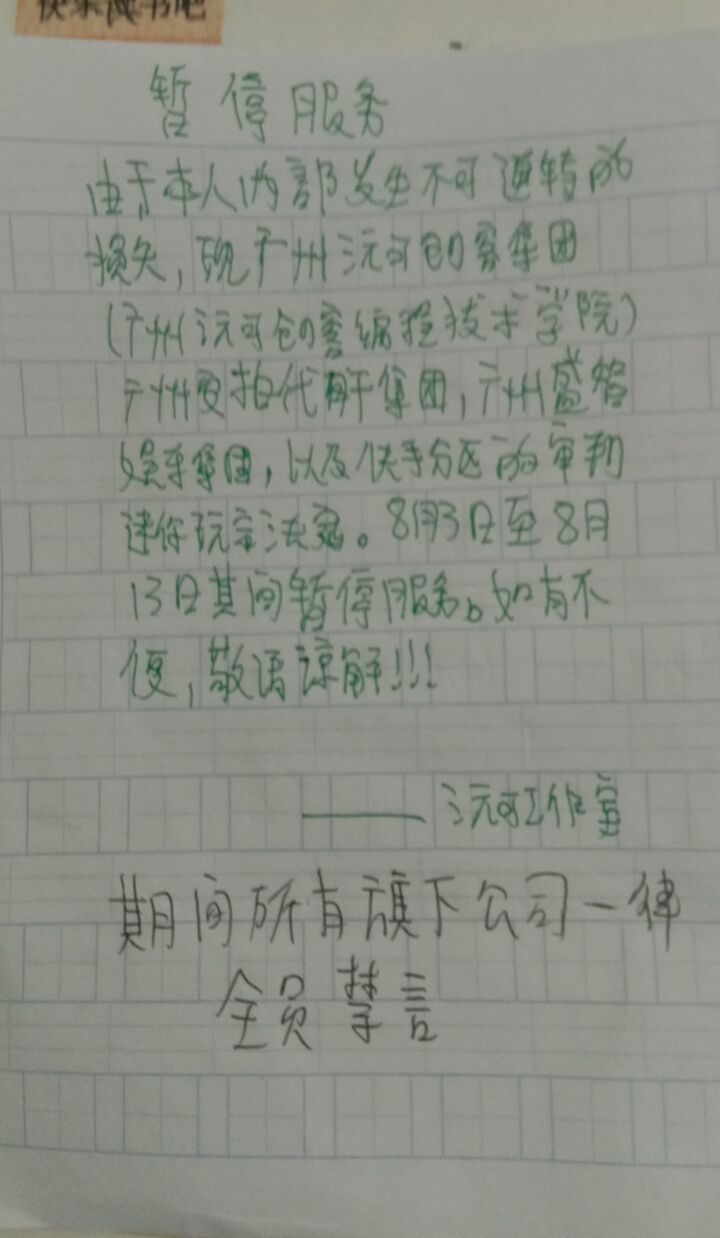 快乐读书吧
暂停服务
由于本人内部发生不可逆转的
损失,现广州沅可创客集团
(广州沅可创客编程技术学院)
广州皮拍代肝集团,广州盛焰
娱乐集团,以及快手分区的审判
迷你玩家决定。8月3日至8月
13日其间暂停服务。如有不
便,敬请谅解!!!
——沅可工作室
期间所有旗下公司一律
全员禁言